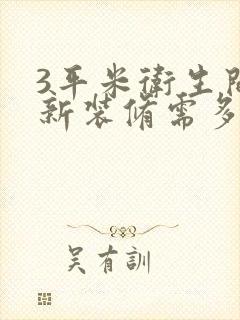 3平米衛生間
新裝脩需多
吴有訓